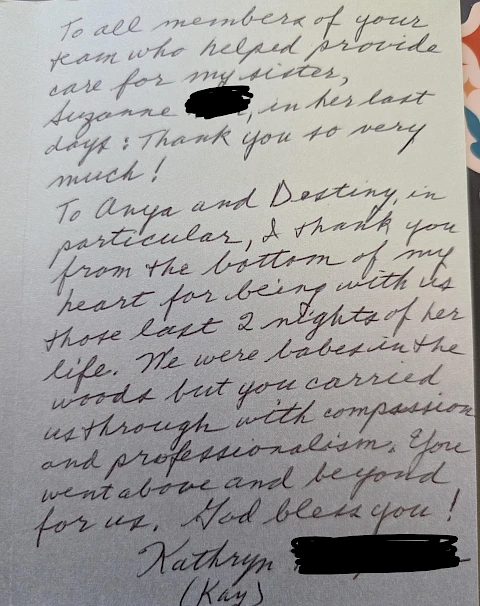 To all members of your
team who helped provide
care for my sister,
Suzanne , in her last
days: Thank you so very
much!
To Anya and Destiny, in
particular, I thank you
from the bottom of my
heart for being with us
those last 2 nights of her
life. We were babes in the
woods but you carried
us through with compassion
and professionalism. You
went above and beyond
for us. God bless you!
Kathryn
(Kay)